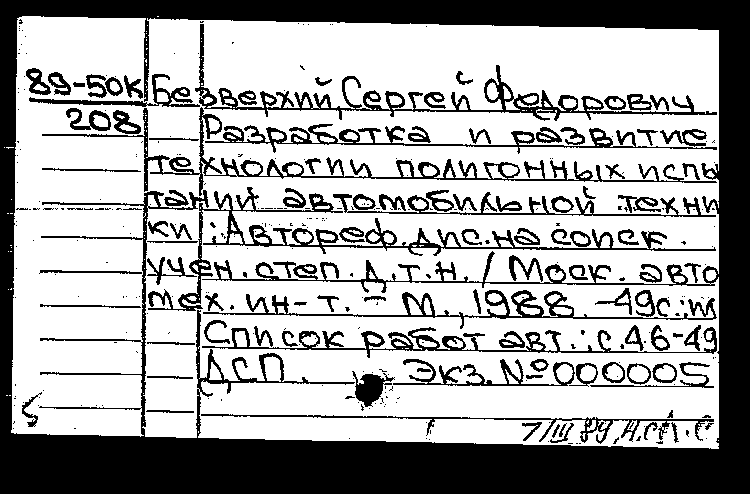 89-50к Безверхий, Сергей Федорович
208 Разработка и развитие
технологии полигонных испы
таний автомобильной техни
ки : Автореф. дис. на соиск.
учен. степ. д.т.н. / Моск. авто
мех. ин-т. - М., 1988. -49с.:ил
Список работ авт.: с.46-49
ДСП. Экз. №000005
7/III 89,